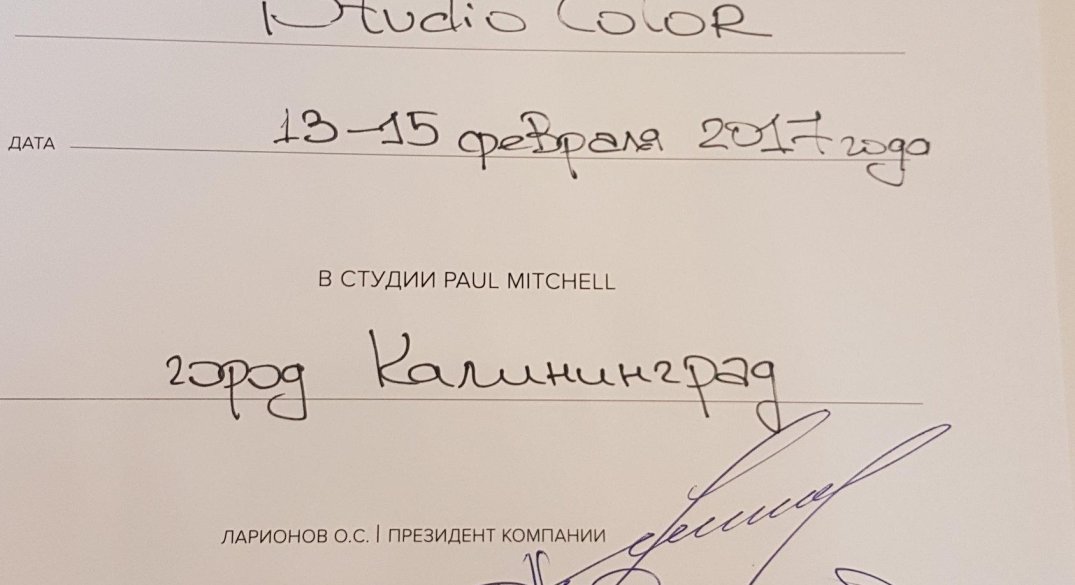 Studio Color
ДАТА 13-15 февраля 2017 года
В СТУДИИ PAUL MITCHELL
город Калининград
ЛАРИОНОВ О.С. | ПРЕЗИДЕНТ КОМПАНИИ